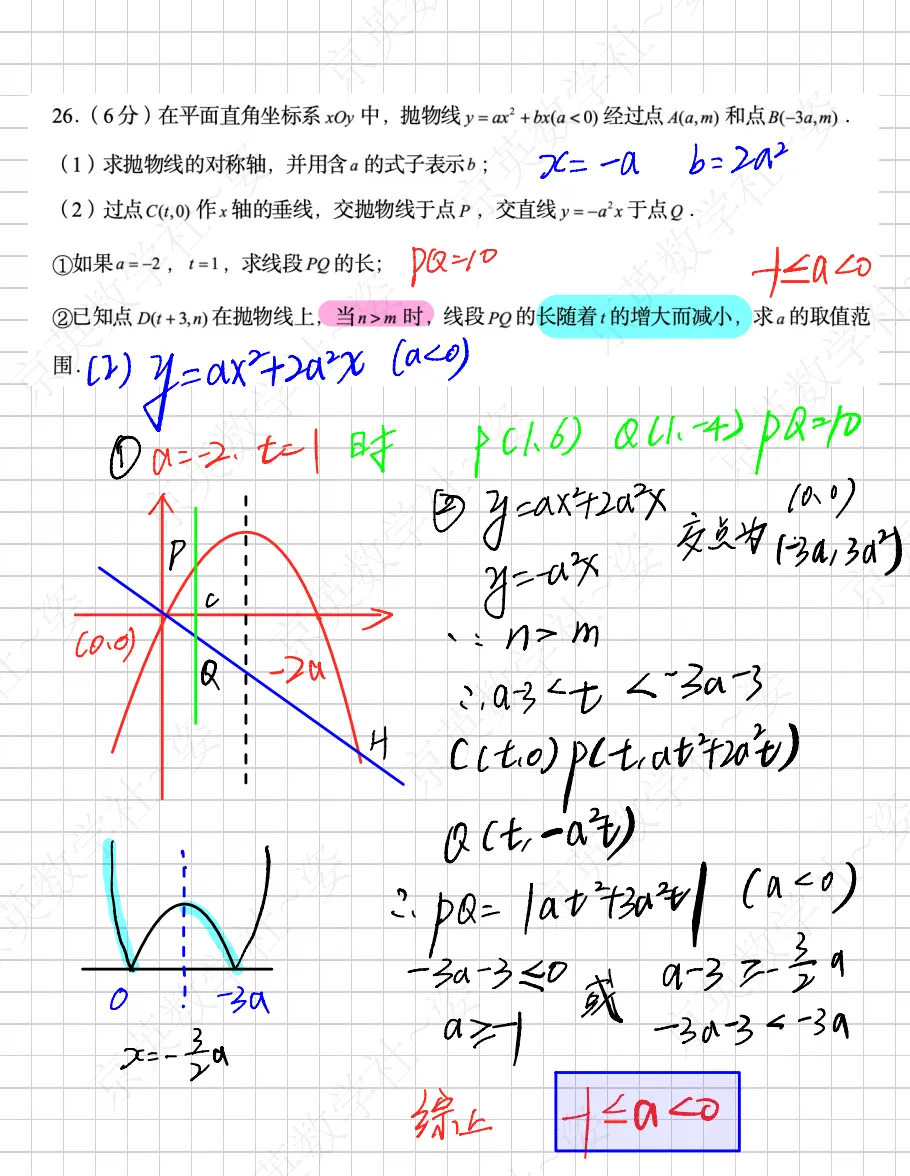 26.（6分）在平面直角坐标系 xOy 中，抛物线 y=ax²+bx(a<0) 经过点 A(a,m) 和点 B(-3a,m)．
（1）求抛物线的对称轴，并用含 a 的式子表示 b； x=-a b=2a²
（2）过点 C(t,0) 作 x 轴的垂线，交抛物线于点 P ，交直线 y=-a²x 于点 Q．
①如果 a=-2 ， t=1 ，求线段 PQ 的长； PQ=10
-1≤a<0
②已知点 D(t+3,n) 在抛物线上，当 n>m 时，线段 PQ 的长随着 t 的增大而减小，求 a 的取值范
围．
(2) y=ax²+2a²x (a<0)
① a=-2. t=1 时 P(1.6) Q(1.-4) PQ=10
P
C
(0.0)
Q
-2a
H
② y=ax²+2a²x
y=-a²x
交点为 (0.0)
(-3a,3a²)
∵ n>m
∴ a-3<t<-3a-3
C(t,0) P(t,at²+2a²t)
Q(t,-a²t)
∴ PQ=|at²+3a²t| (a<0)
0 -3a
x=-3/2a
-3a-3≤0
a≥-1
或
a-3≥-3/2a
-3a-3<-3a
综上 -1≤a<0
京英数学社~姿